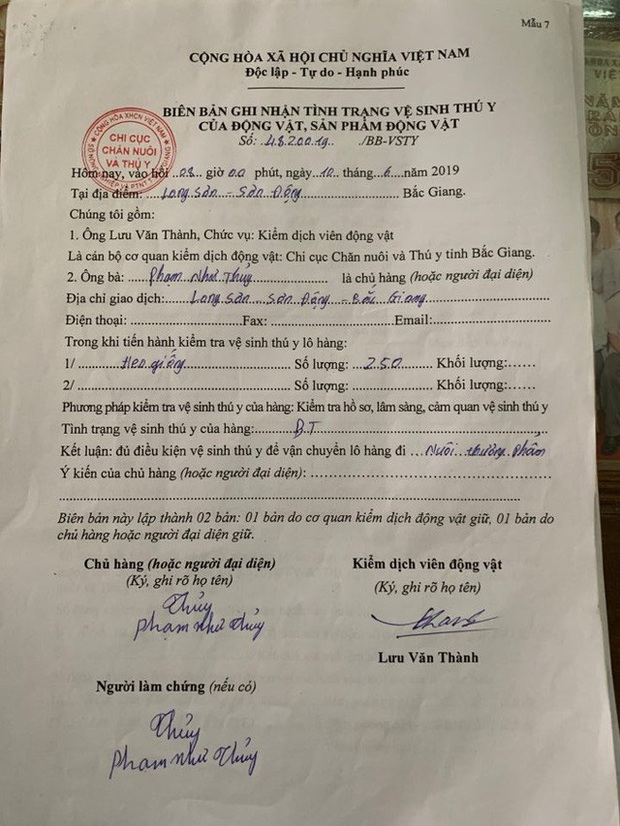 Mẫu 7
CỘNG HÒA XÃ HỘI CHỦ NGHĨA VIỆT NAM
Độc lập - Tự do - Hạnh phúc
BIÊN BẢN GHI NHẬN TÌNH TRẠNG VỆ SINH THÚ Y
CỦA ĐỘNG VẬT, SẢN PHẨM ĐỘNG VẬT
CHI CỤC
CHĂN NUÔI
VÀ THÚ Y
Số: 4820019 /BB-VSTY
Hôm nay, vào hồi 08 giờ 00 phút, ngày 10 tháng 6 năm 2019
Tại địa điểm: Long Sản - Sơn Động Bắc Giang.
Chúng tôi gồm:
1. Ông Lưu Văn Thành, Chức vụ: Kiểm dịch viên động vật
Là cán bộ cơ quan kiểm dịch động vật: Chi cục Chăn nuôi và Thú y tỉnh Bắc Giang.
2. Ông bà: Phạm Như Thủy là chủ hàng (hoặc người đại diện)
Địa chỉ giao dịch: Long Sản Sơn Động - Bắc Giang
Điện thoại: Fax: Email:
Trong khi tiến hành kiểm tra vệ sinh thú y lô hàng:
1/ Heo giống Số lượng: 250 Khối lượng:......
2/ Số lượng: Khối lượng:......
Phương pháp kiểm tra vệ sinh thú y của hàng: Kiểm tra hồ sơ, lâm sàng, cảm quan vệ sinh thú y
Tình trạng vệ sinh thú y của hàng: B.T
Kết luận: đủ điều kiện vệ sinh thú y để vận chuyển lô hàng đi Nuôi thương phẩm
Ý kiến của chủ hàng (hoặc người đại diện):
Biên bản này lập thành 02 bản: 01 bản do cơ quan kiểm dịch động vật giữ, 01 bản do
chủ hàng hoặc người đại diện giữ.
Chủ hàng (hoặc người đại diện) Kiểm dịch viên động vật
(Ký, ghi rõ họ tên) (Ký, ghi rõ họ tên)
Thủy
Phạm Như Thủy
Lưu Văn Thành
Người làm chứng (nếu có)
Thủy
Phạm Như Thủy